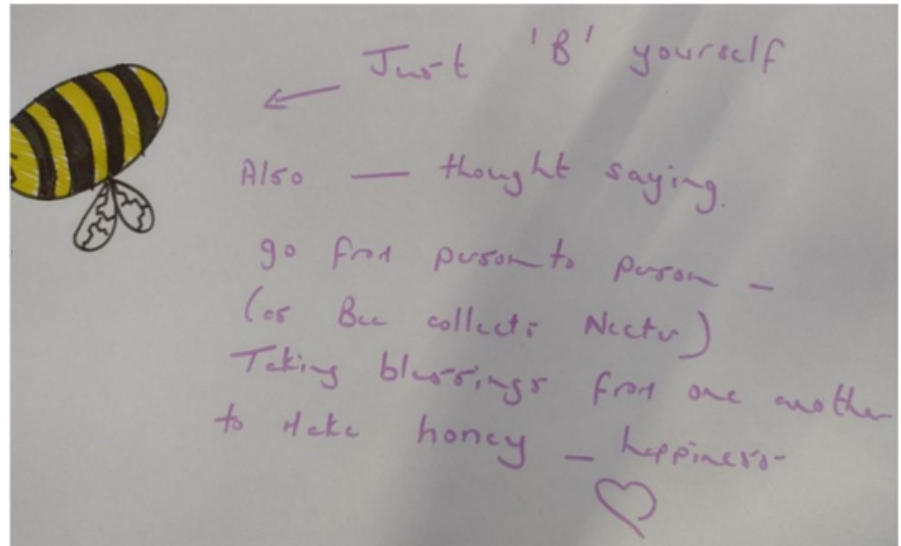 Just 'B' yourself
Also — thought saying.
go from person to person –
(as Bee collects Nectar)
Taking blessings from one another
to Make honey – happiness